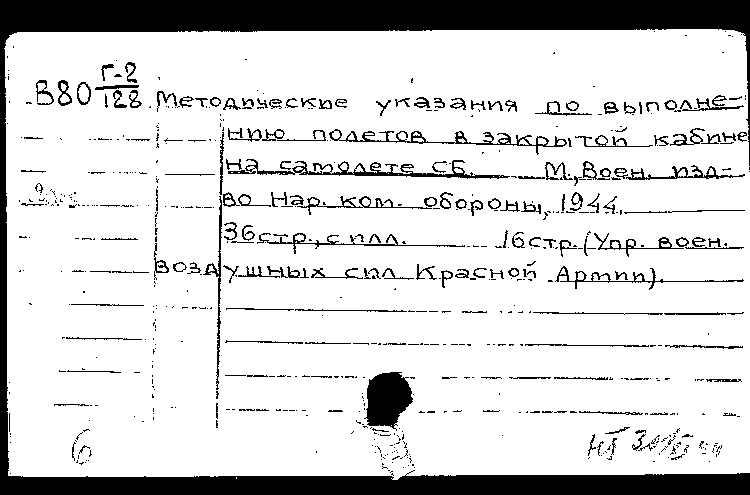 В80 Г-2/128 Методические указания по выполне-
нию полетов в закрытой кабине
на самолете СБ. М., Воен. изд-
во Нар. ком. обороны, 1944.
36стр., с илл. 16стр. (Упр. воен.
воздушных сил Красной Армии).
6